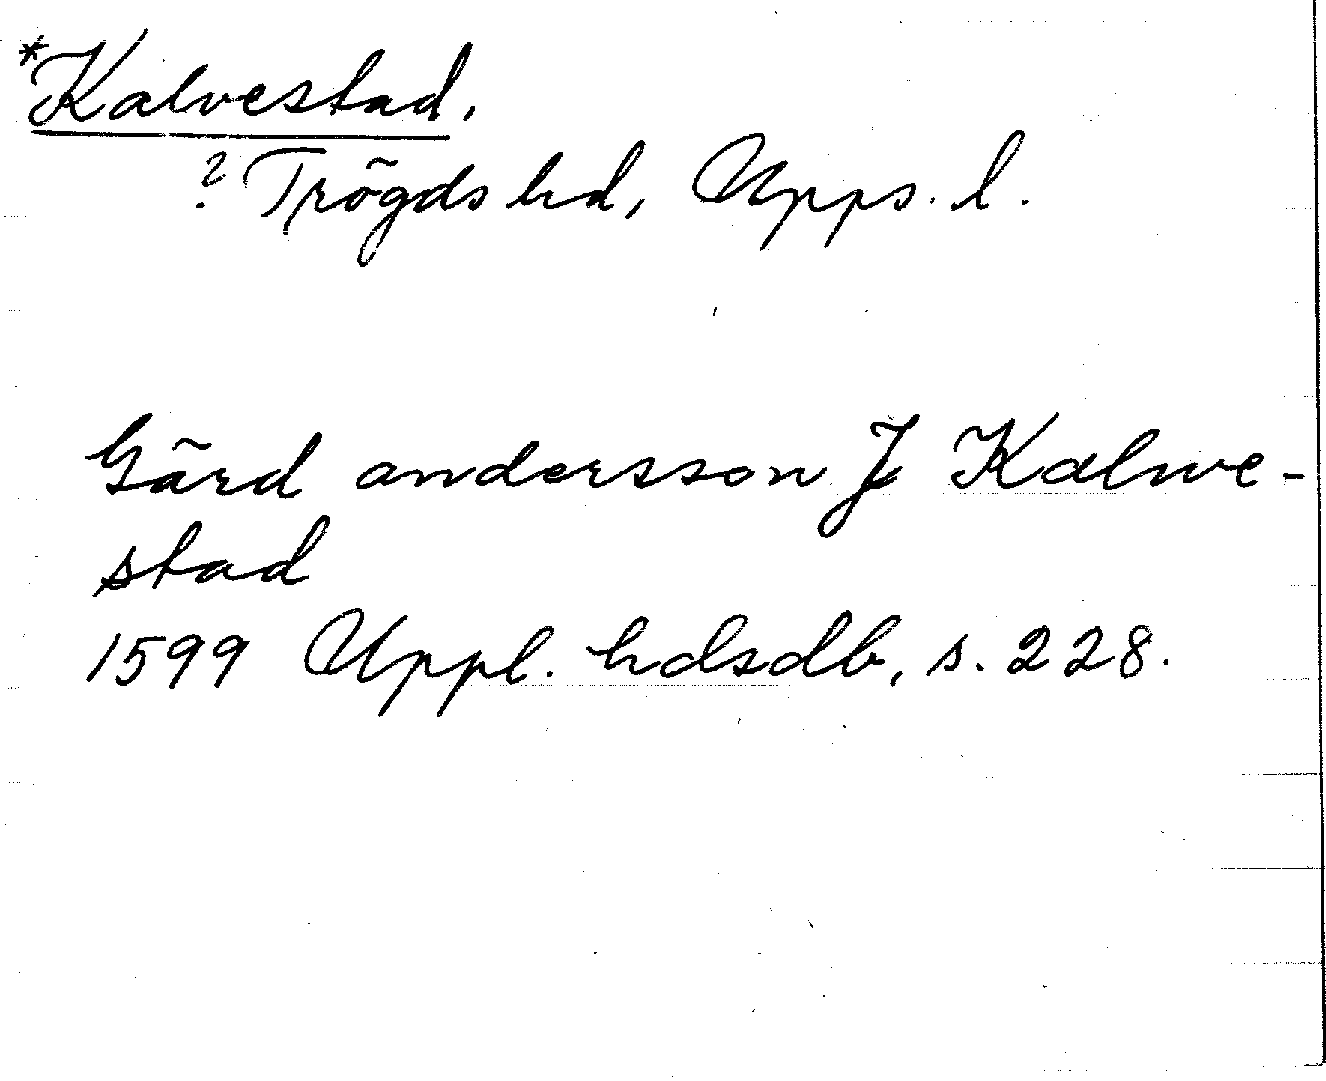 *Kalvestad,
? Trögds hd, Upps. l.
Gärd andersson J Kalwe-
stad
1599 Uppl. hdsdb, s. 228.